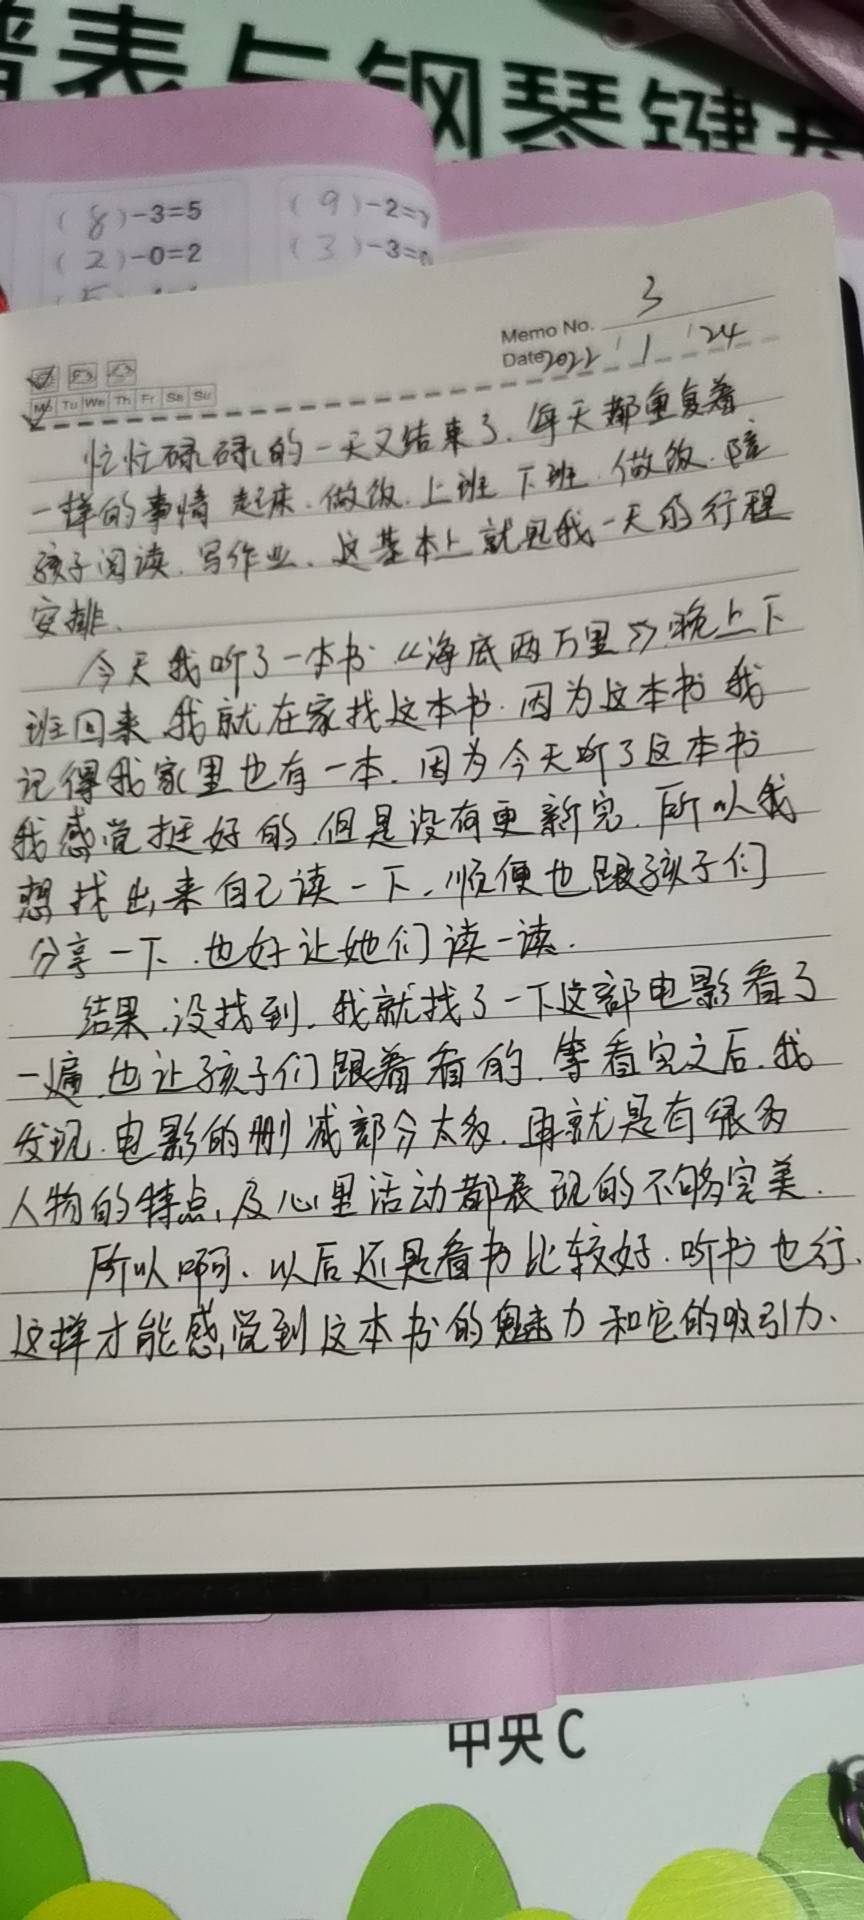 谱表与钢琴键盘
(8)-3=5 (9)-2=7
(2)-0=2 (3)-3=0
Memo No. 3
Date 2022 1 24
Mo Tu We Th Fr Sa Su
忙忙碌碌的一天又结束了.每天都重复着
一样的事情 起床.做饭.上班 下班.做饭.陪
孩子阅读.写作业.这基本上就是我一天的行程
安排.
今天我听了一本书《海底两万里》.晚上下
班回来.我就在家找这本书.因为这本书我
记得我家里也有一本.因为今天听了这本书
我感觉挺好的.但是没有更新完.所以我
想找出来自己读一下.顺便也跟孩子们
分享一下.也好让她们读一读.
结果.没找到.我就找了一下这部电影看了
一遍.也让孩子们跟着看的.等看完之后.我
发现.电影的删减部分太多.再就是有很多
人物的特点,及心里活动都表现的不够完美.
所以啊、以后还是看书比较好.听书也行、
这样才能感觉到这本书的魅力和它的吸引力、
中央C